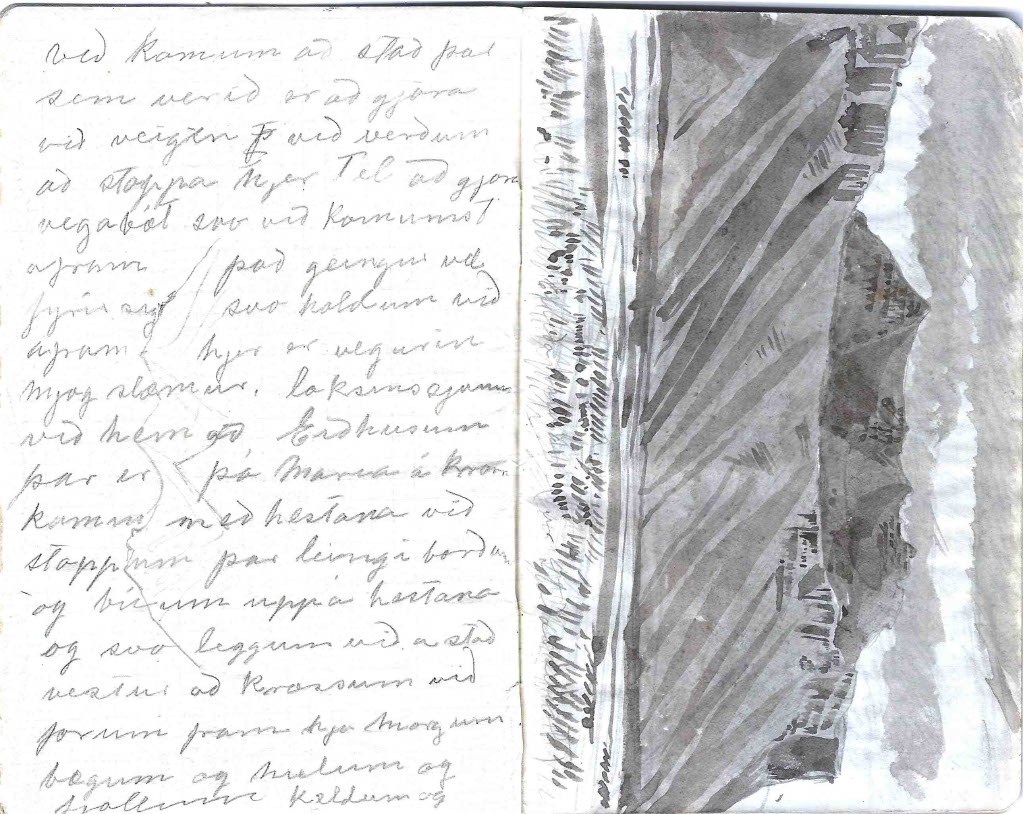 við komum að stað þar
sem verið er að gjöra
við veigin þ við verðum
að stoppa hjer Til að gjöra
vegabót svo við komumst
afram það geingur vel
fyrir sig svo holdum við
afram hjer er vegurin
mjog slæmur. loksins sjaum
við hem að Eidhusum
þar er þá Maria á Kross
komin með hestana við
stoppum þar leingi bordum
og bium uppá hestana
og svo leggum við a stað
vestur að Krossum við
forum fram hja morgum
bægum og hælum og
kældum og